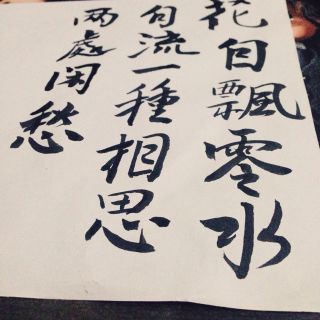 花自飄零水
自流一種相思
兩處閑愁